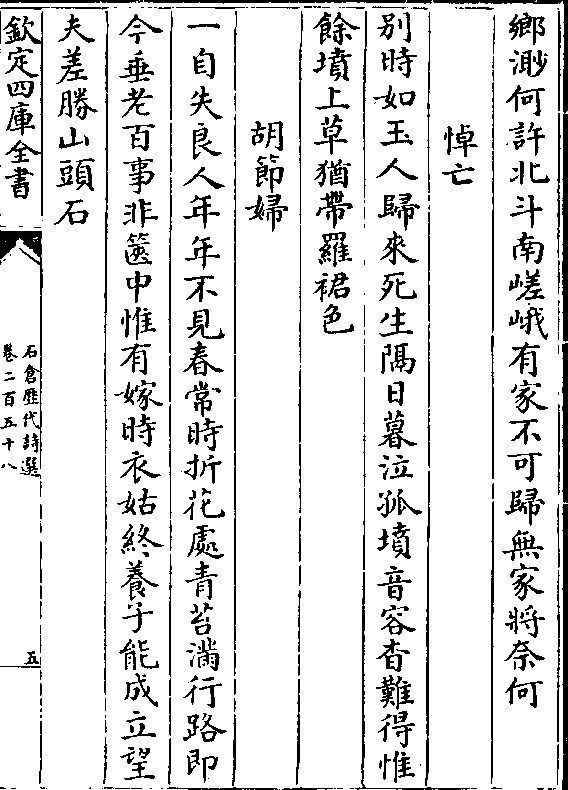 鄉渺何許北斗南嵯峨有家不可歸無家將奈何
悼亡
别時如玉人歸來死生隔日暮泣孤墳音容杳難得惟
餘墳上草猶帶羅裙色
胡節婦
一自失良人年年不見春常時折花處青苔滿行路即
今垂老百事非篋中惟有嫁時衣姑終養子能成立望
夫差勝山頭石
欽定四庫全書
石倉歷代詩選
卷二百五十八
五